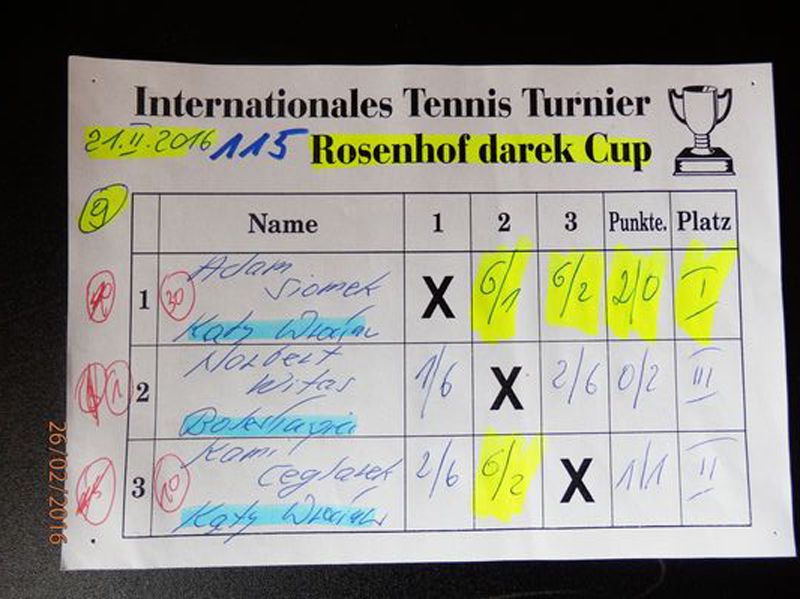 Internationales Tennis Turnier
21.II.2016 115 Rosenhof darek Cup
9
Name 1 2 3 Punkte. Platz
1 30 Adam Siomek X 6/1 6/2 2/0 I
Kąty Wrocław
2 Norbert Witas 1/6 X 2/6 0/2 III
3 10 Kamil Ceglarek 2/6 6/2 X 1/1 II
Kąty Wrocław
26/02/2016